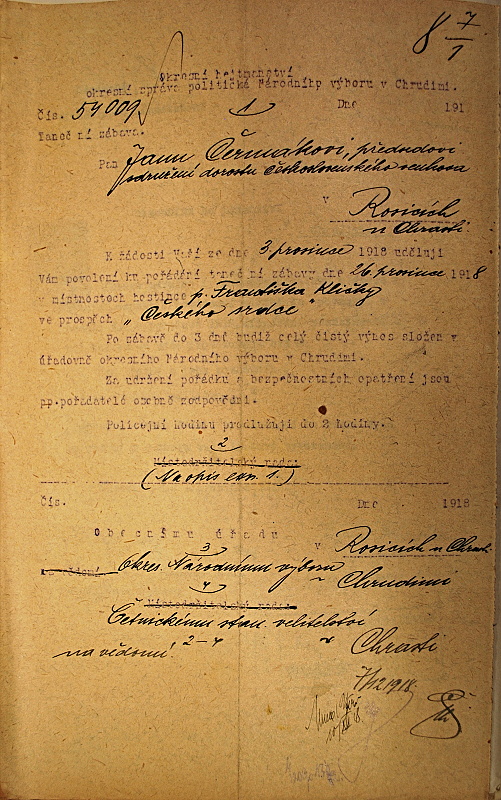 8 7/1
Okresní hejtmanství
okresní správa politická Národního výboru v Chrudimi.
Čís. 54009 1 Dne 191
Taneční zábava.
Pan Janu Čermákovi, předsedovi
sdružení dorostu československého venkova
v Rosicích
u Chrasti
K žádosti Vaší ze dne 3 prosince 1918 uděluji
Vám povolení ku pořádání taneční zábavy dne 26 prosince 1918
v místnostech hostince p. Františka Kličky
ve prospěch „Českého srdce"
Po zábavě do 3 dnů budiž celý čistý výnos složen v
úřadovně okresního Národního výboru v Chrudimi.
Za udržení pořádku a bezpečnostních opatření jsou
pp.pořadatelé osobně zodpovědni.
Policejní hodinu prodlužuji do 2 hodiny.
2
Místodržitelský rada:
(Na opis exp. 1.)
Čís. Dne 1918
Obecnímu úřadu
v Rosicích u Chrasti
3
Okres. Národnímu výboru
v Chrudimi
4
Místodržitelský rada:
Četnickému stan. velitelství
v Chrasti
na vědomí! 2-4
7/12 1918